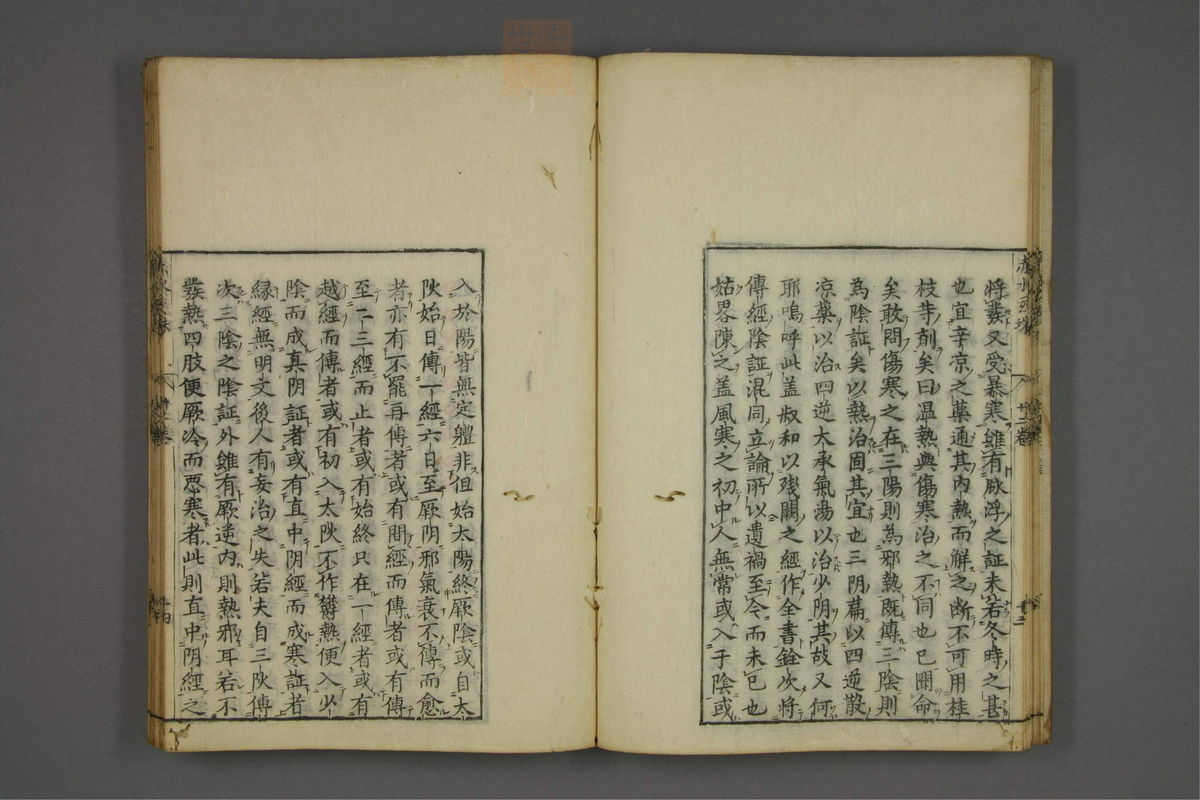 將發又受暴寒雖有脉浮之証未若冬時之甚
也宜辛凉之藥通其内熱而解之断不可用桂
枝等剤矣曰温熱與傷寒治之不同也已聞命
矣敢問傷寒之在三陽則為邪熱既傳三陰則
為陰証矣以熱治固其宜也三阴篇以四逆散
凉藥以治四逆大承氣湯以治少阴其故又何
耶嗚呼此盖叔和以殘闕之經作全書銓次將
傳經陰証混同立論所以遺禍至今而未已也
姑畧陳之盖風寒之初中人無常或入于陰或
入於陽皆無定軆非但始太陽終厥陰或自太
阦始日傳一經六日至厥阴邪氣衰不傳而愈
者亦有不罷再傳者或有間經而傳者或有傳
至二三經而止者或有始終只在一經者或有
越經而傳者或有初入太阦不作欝熱便入少
陰而成真阴証者或有直中阴經而成寒証者
縁經無明文後人有妄治之失若夫自三阦傳
次三陰之陰証外雖有厥逆内則熱邪耳若不
發熱四肢便厥冷而悪寒者此則直中阴經之